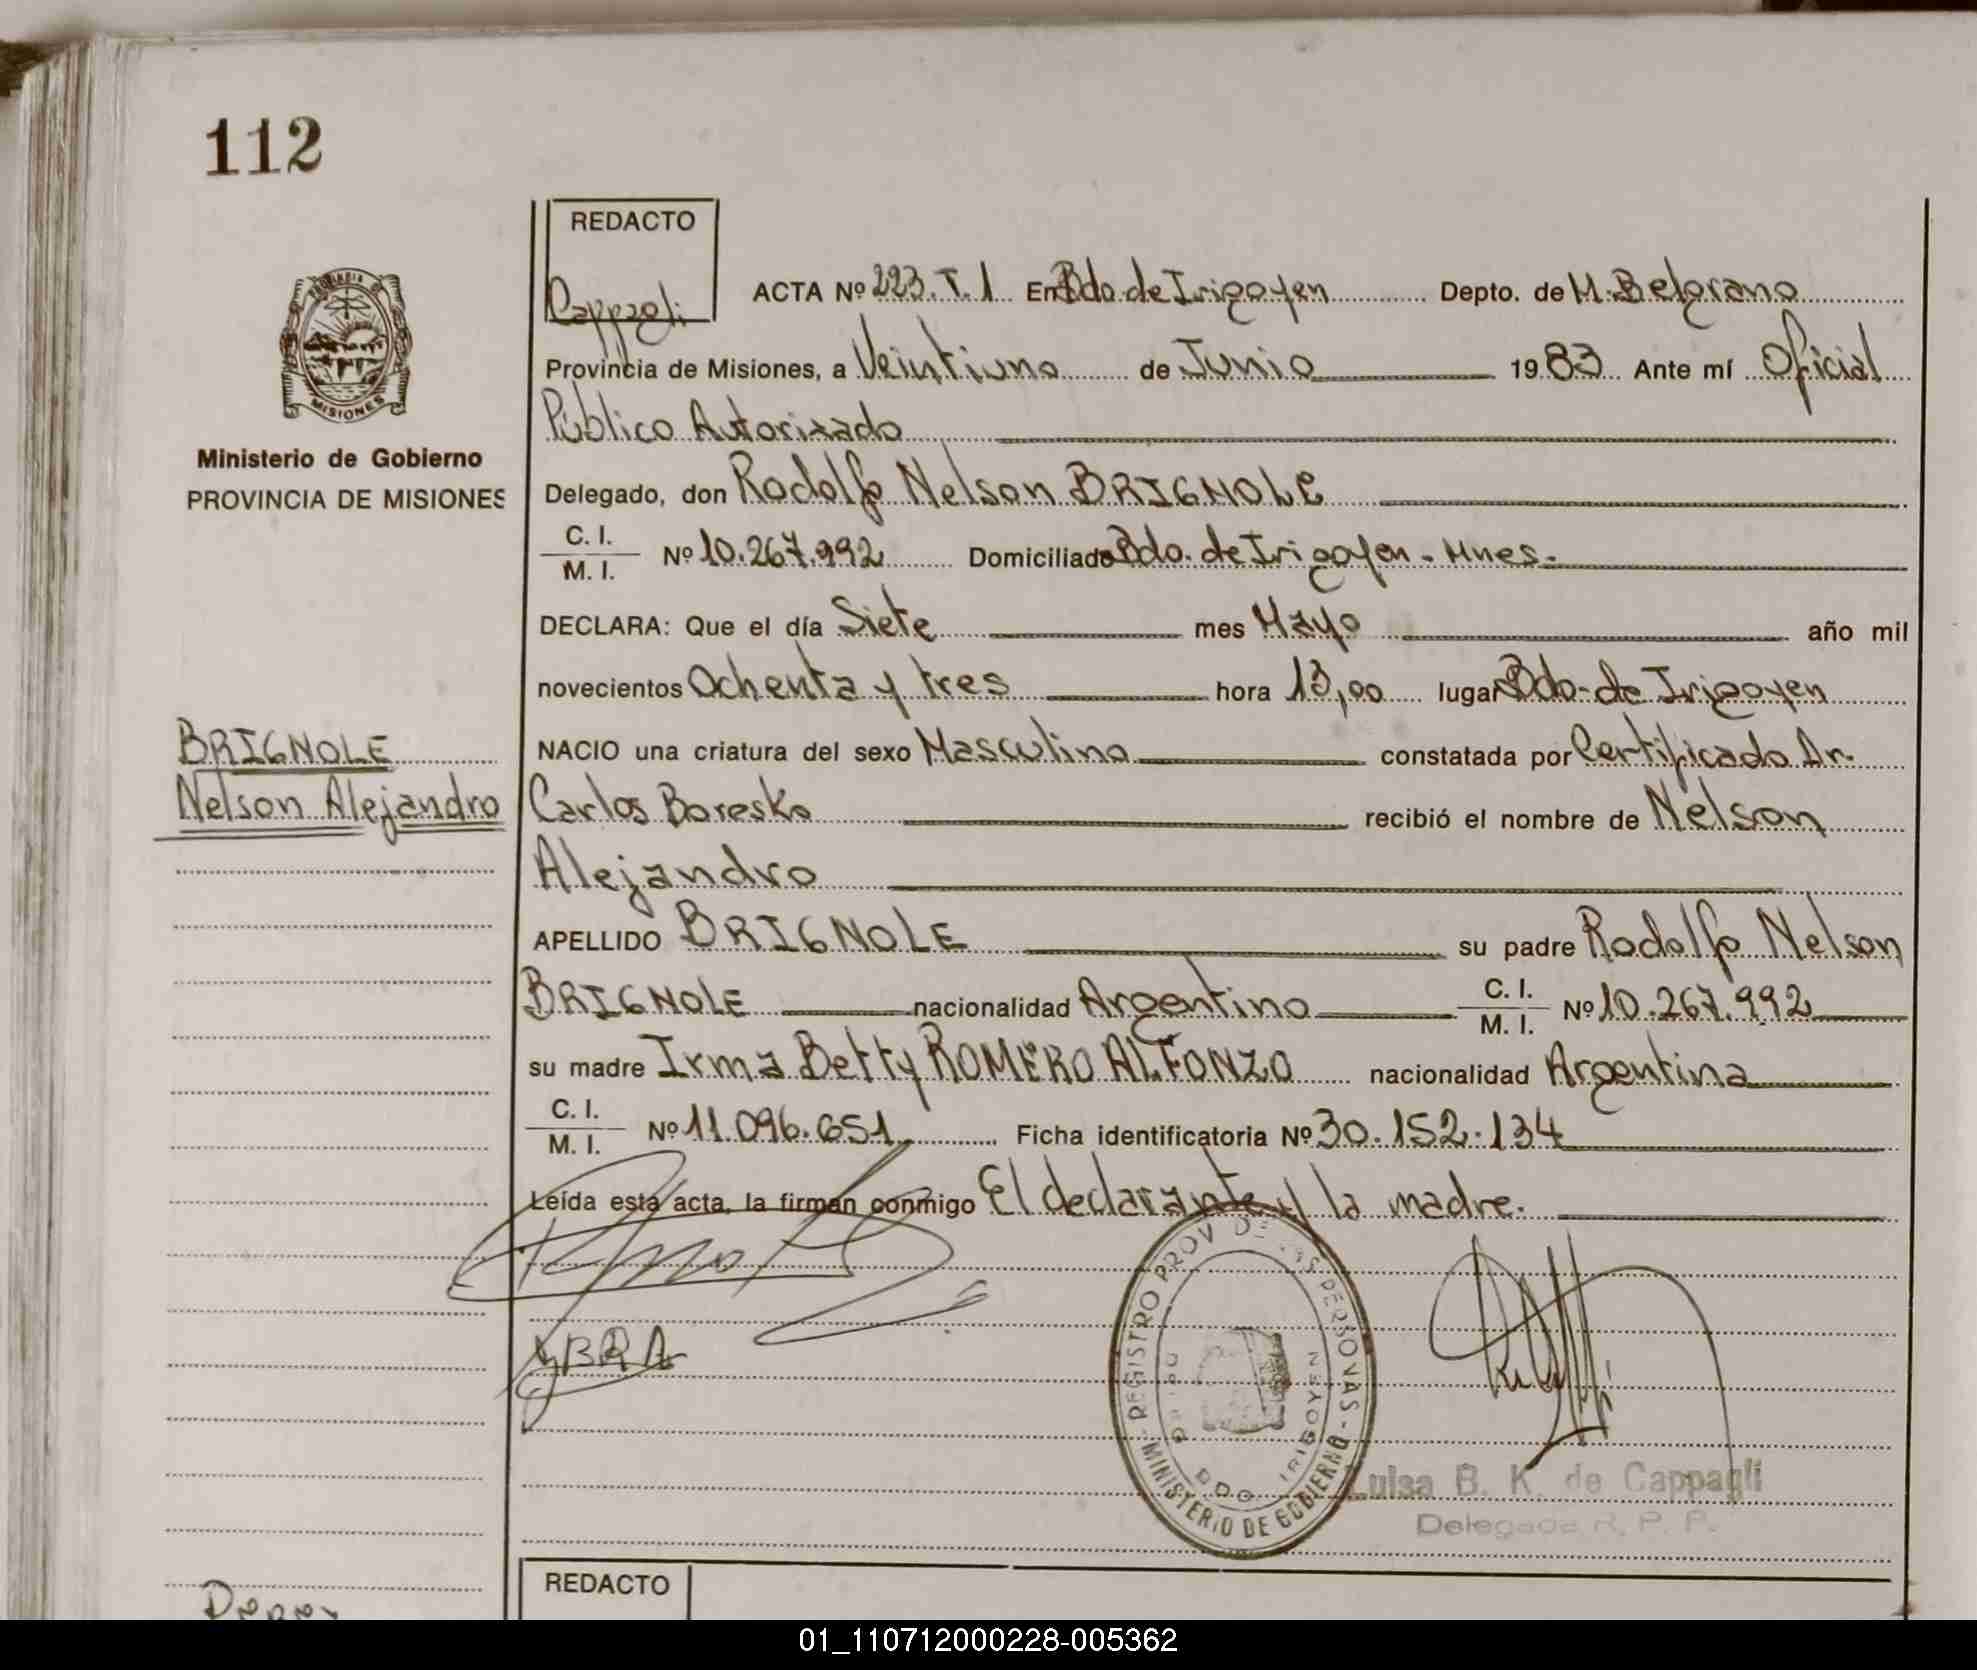 112
REDACTO
Cappagli
ACTA Nº 223.T.1 En Bdo de Irigoyen Depto. de M. Belgrano
Provincia de Misiones, a Veintiuno de Junio 1983 Ante mí Oficial
Público Autorizado
PROVINCIA DE
MISIONES
Ministerio de Gobierno
PROVINCIA DE MISIONES
Delegado, don Rodolfo Nelson BRIGNOLE
C. I.
M. I. Nº 10.267.992 Domiciliado Bdo. de Irigoyen - Mnes.
DECLARA: Que el día Siete mes Mayo año mil
novecientos Ochenta y tres hora 13,00 lugar Bdo. de Irigoyen
BRIGNOLE
Nelson Alejandro
NACIO una criatura del sexo Masculino constatada por Certificado Dr.
Carlos Boresko recibió el nombre de Nelson
Alejandro
APELLIDO BRIGNOLE su padre Rodolfo Nelson
BRIGNOLE nacionalidad Argentino C. I. M. I. Nº 10.267.992
su madre Irma Betty ROMERO ALFONZO nacionalidad Argentina
C. I.
M. I. Nº 11.096.651 Ficha identificatoria Nº 30.152.134
Leída esta acta, la firman conmigo El declarante y la madre.
REGISTRO PROV DE LAS PERSONAS - MINISTERIO DE GOBIERNO
BDO. IRIGOYEN
Luisa B. K. de Cappagli
Delegada R. P. P.
REDACTO
01_110712000228-005362